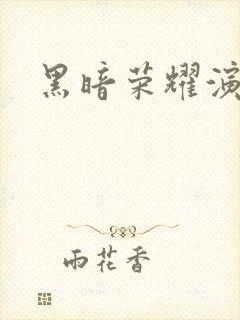 黑暗荣耀演
雨花香